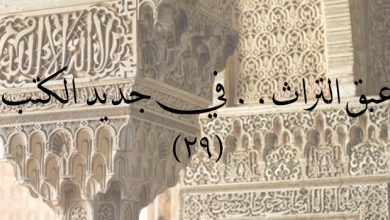 عبق التراث . . في جديد الكتب
(٢٩)